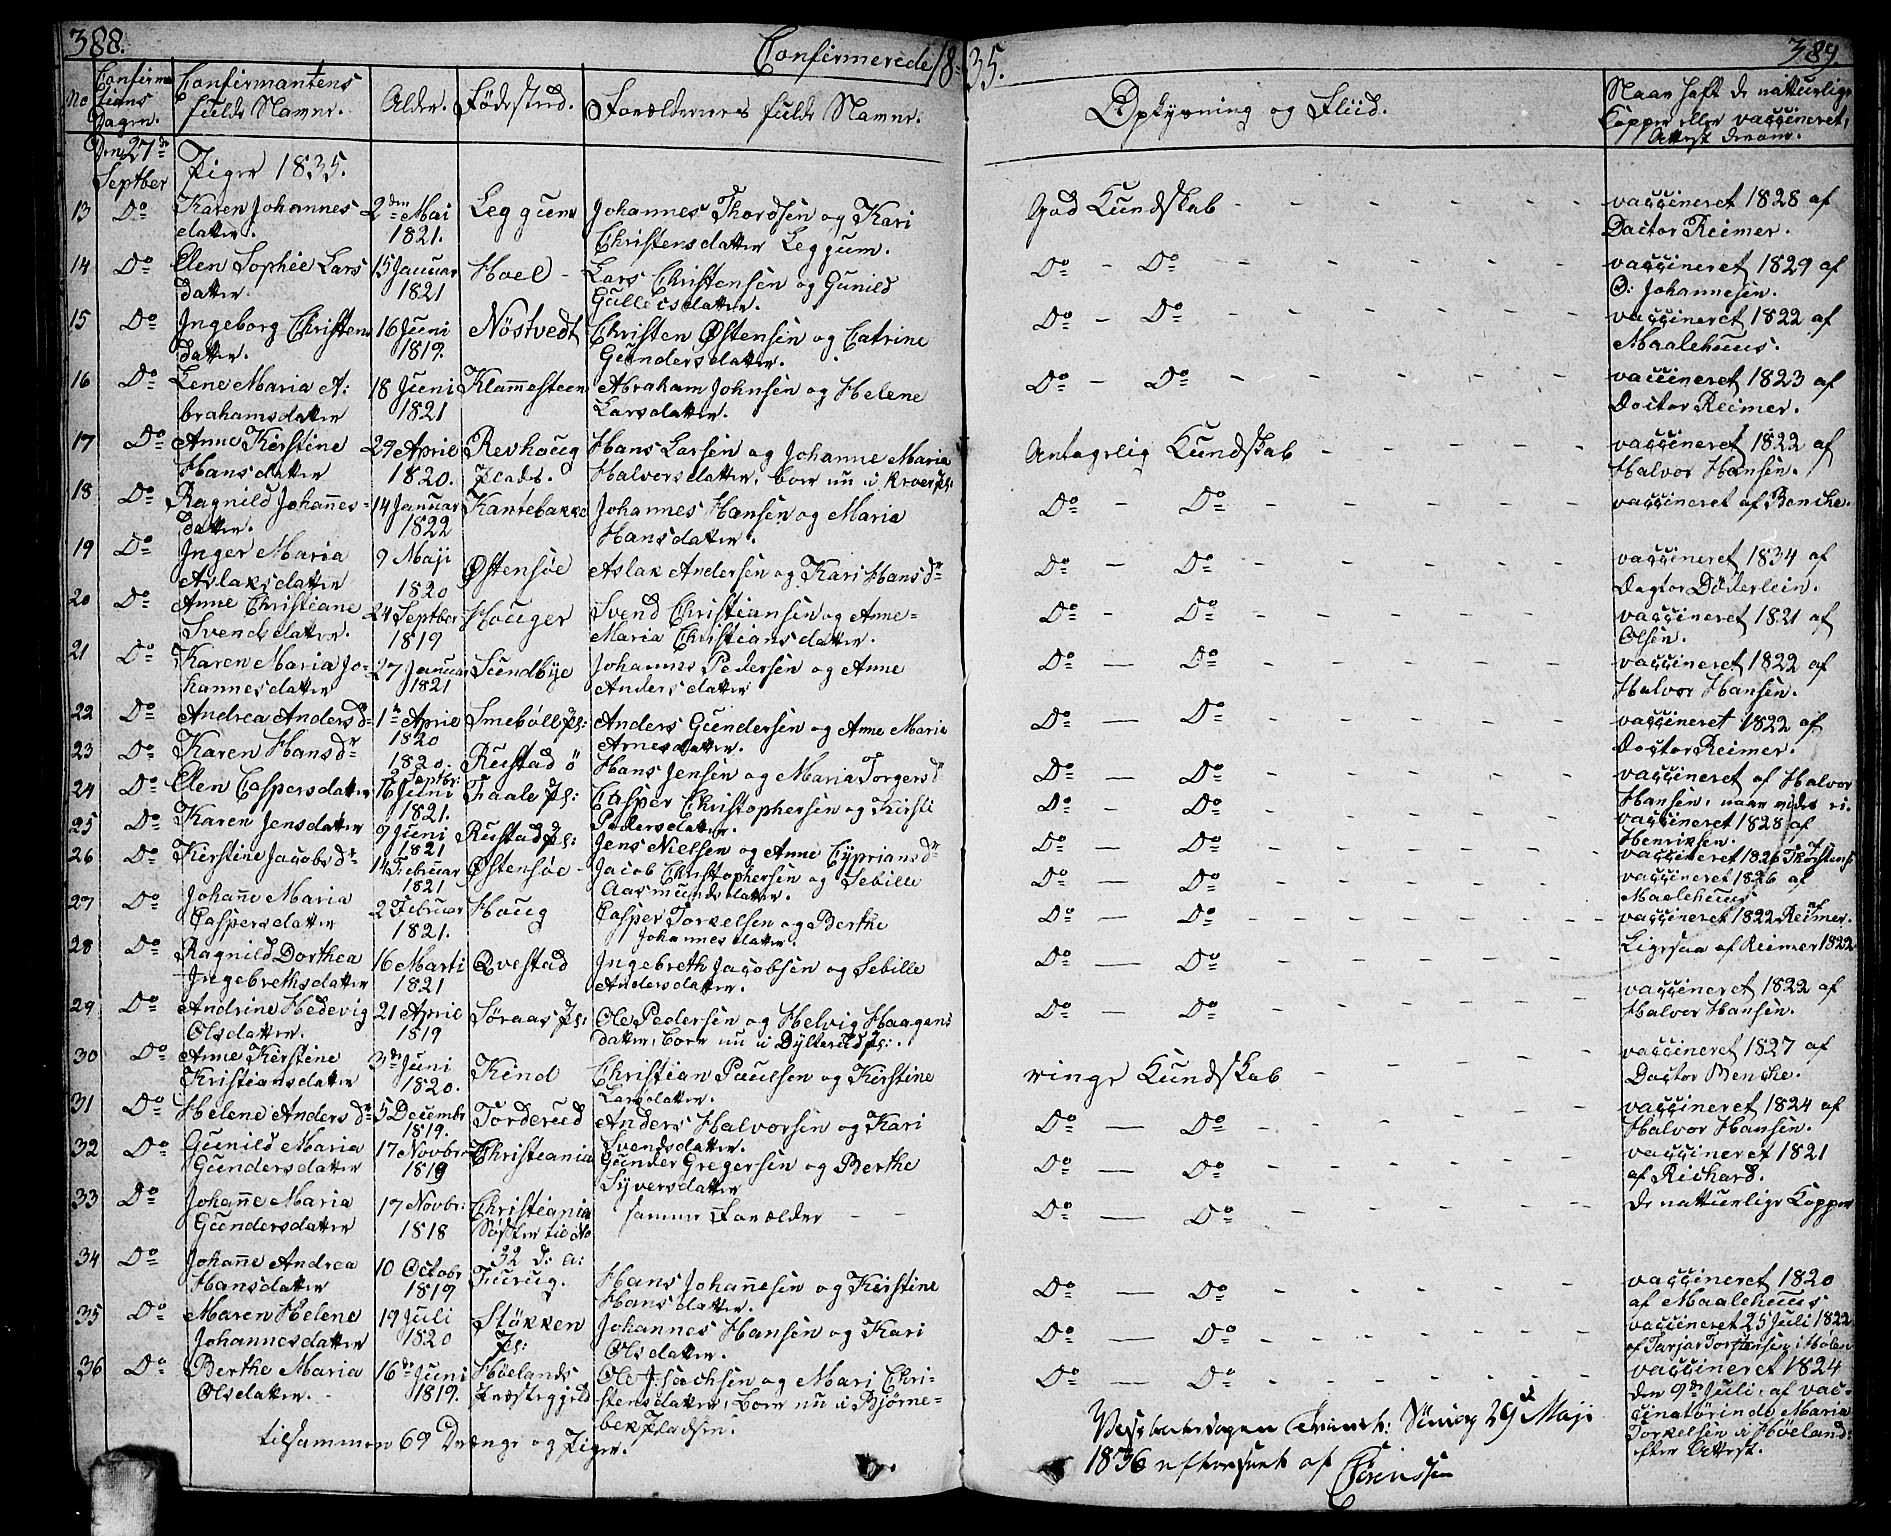 388.
Confirmerede 1835.
389.
No
Confirma
tions
Dagen.
Confirmantens
fulde Navne.
Alder.
Fødested.
Forældrenes fulde Navne.
Oplysning og Fliid.
Naar haft de naturlige
Kopper eller vaccineret,
Attest derom.
Den 27de
Septber
Piger 1835.
13 Do Karen Johannes 2den Mai Leggum Johannes Thordsen og Kari God Kundskab - - - vaccineret 1828 af
datter. 1821. Christensdatter Leggum. Doctor Reimer.
14 Do Elen Sophie Lars 15 Januar Hoel - Lars Christensen og Gunild Do - Do - - - vaccineret 1829 af
datter. 1821 Gulleicsdatter. O: Johannesen.
15 Do Ingeborg Christens 16 Juni Nöstvedt Christen Østensen og Catrine Do - Do - - - vaccineret 1822 af
datter. 1819. Gundersdatter. Maalehuus.
16 Do Lene Maria A: 18 Juni Klammesteen Abraham Johnsen og Helene Do - Do - - - vaccineret 1823 af
brahamsdatter 1821 Larsdatter. Doctor Reimer.
17 Do Anne Kirstine 29 April Revhoug Hans Larsen og Johanne Maria Antagelig Kundskab - - - vaccineret 1822 af
Hansdatter 1820. Plads. Halvorsdatter, boer nu i Kroer Pl: Halvor Hansen.
18 Do Ragnild Johannes- 14 Januar Kantebakke Johannes Hansen og Maria Do - Do - - - vaccineret af Bencke.
datter. 1822 Hansdatter.
19 Do Inger Maria 9 Maji Østensøe Aslak Andersen og Kari Hansdr Do - Do - - - vaccineret 1834 af
Aslaksdatter 1820 Doctor Döderlein.
20 Do Anne Christiane 24 Septber Houger Svend Christiansen og Anne- Do - Do - - - vaccineret 1821 af
Svendsdatter. 1819 Maria Christiansdatter. Olsen.
21 Do Karen Maria Jo- 27 Januar Sundbye Johannes Pedersen og Anne Do - Do - - - vaccineret 1822 af
hannesdatter 1821 Andersdatter Halvor Hansen.
22 Do Andrea Andersdr 1te April Smeböll Pl: Anders Gundersen og Anne Maria Do - Do - - - vaccineret 1822 af
1820 Arnesdatter. Doctor Reimer.
23 Do Karen Hansdr 1820. Rustad ö Hans Jensen og Maria Torgersdr Do - Do - - - vaccineret af Halvor
2 Septbr: Hansen, naar vides ei.
24 Do Elen Caspersdatter 16 Juni Taale Pl: Casper Christophersen og Kirsti Do - Do - - - vaccineret 1828 af
1821. Pedersdatter. Henriksen.
25 Do Karen Jensdatter 9 Juni Rustad Pl: Jens Nielsen og Anne Cypriansdr Do - Do - - - vaccineret 1826 af Thorstens
1821
26 Do Kirstine Jacobsdr 14 Februar Østensøe - Jacob Christophersen og Sebille Do - Do - - - vaccineret 1826 af
1821 Aasmundsdatter. Maalehuus
27 Do Johanne Maria 2 Februar Houg Casper Torkelsen og Berthe Do - Do - - - vaccineret 1822 af Reimer.
Caspersdatter 1821. Johannesdatter.
28 Do Ragnild Dorthea 16 Marti Qvestad Ingebreth Jacobsen og Sebille Do - Do - - - Ligesaa af Reimer 1822
Ingebrethsdatter 1821 Andersdatter.
29 Do Andrine Hedevig 21 April Søraas Pl: Ole Pedersen og Helvig Haagens Do - Do - - - vaccineret 1822 af
Olsdatter. 1819 datter, boer nu i Dylterud Pl:. Halvor Hansen.
30 Do Anne Kirstine 3de Juni Kind Christian Paulsen og Kirstine ringe Kundskab - - - vaccineret 1827 af
Kristiansdatter 1820. Larsdatter. Doctor Bencke.
31 Do Helene Andersdr 5 Decembr Torderud Anders Halvorsen og Kari Do - Do - - - vaccineret 1824 af
1819. Svendsdatter. Halvor Hansen.
32 Do Gunild Maria 17 Novbr Christiania Gunder Gregersen og Berthe Do - Do - - - vaccineret 1821
Gundersdatter 1819 Syversdatter af Richard.
33 Do Johanne Maria 17 Novbr: Christiania samme Forælder - - Do - Do - - - de naturlige Kopper
Gundersdatter 1818 Søster til No
32 d: a:
34 Do Johanne Andrea 10 Octobr Fuurug. Hans Johannesen og Kirstine Do - Do - - - vaccineret 1820
Hansdatter 1819 Hansdatter. af Maalehuus
35 Do Maren Helene 19 Juli Stökken Johannes Hansen og Kari Do - Do - - - vaccineret 25 Juli 1822
Johannesdatter 1820 Pl: Olsdatter. af Tarjer Torstensen i Mølen
36 Do Berthe Maria 16de Juni Höelands Ole Isachsen og Mari Chri- Do - Do - - - vaccineret 1824
Olsdatter. - 1819. Præstegjeld stensdatter, boer nu i Bjørne- den 9de Juli, af vac-
bek Pladsen. cinatørinde Maria
Torkelsen i Høeland:
efter Attest.
tilsammen 69 Drenge og Piger.
Söndag 29de Maji
1836 af